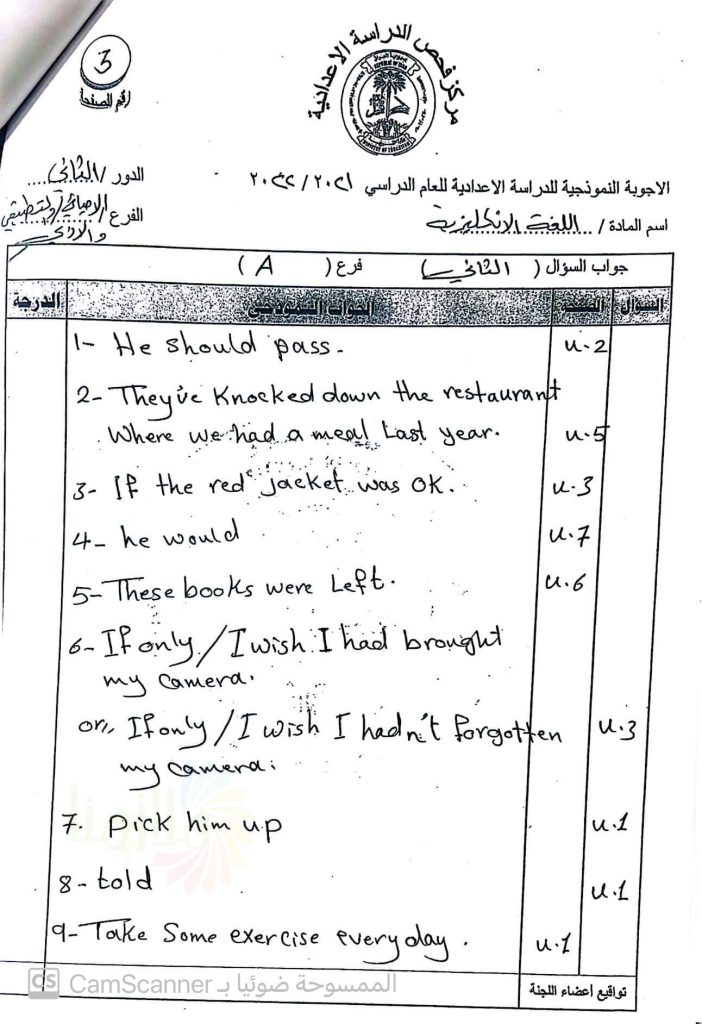 3
رقم الصفحة
مركز فحص الدراسة الاعدادية
الاجوبة النموذجية للدراسة الاعدادية للعام الدراسي ٢٠٢١/٢٠٢٢
الدور / الثاني
اسم المادة / اللغة الانكليزية
الفرع / الاحيائي / والتطبيقي
والادبي
جواب السؤال ( الثاني ) فرع ( A )
السؤال الصفحة الجواب النموذجي الدرجة
1- He should pass. u.2
2- They've knocked down the restaurant
where we had a meal last year. u.5
3- If the red jacket was OK. u.3
4- he would u.7
5- These books were left. u.6
6- If only / I wish I had brought
my camera.
or,, If only / I wish I hadn't forgotten u.3
my camera.
7. Pick him up u.1
8- told u.1
9- Take some exercise every day. u.1
تواقيع اعضاء اللجنة
CS CamScanner الممسوحة ضوئيا بـ
ملازمنا